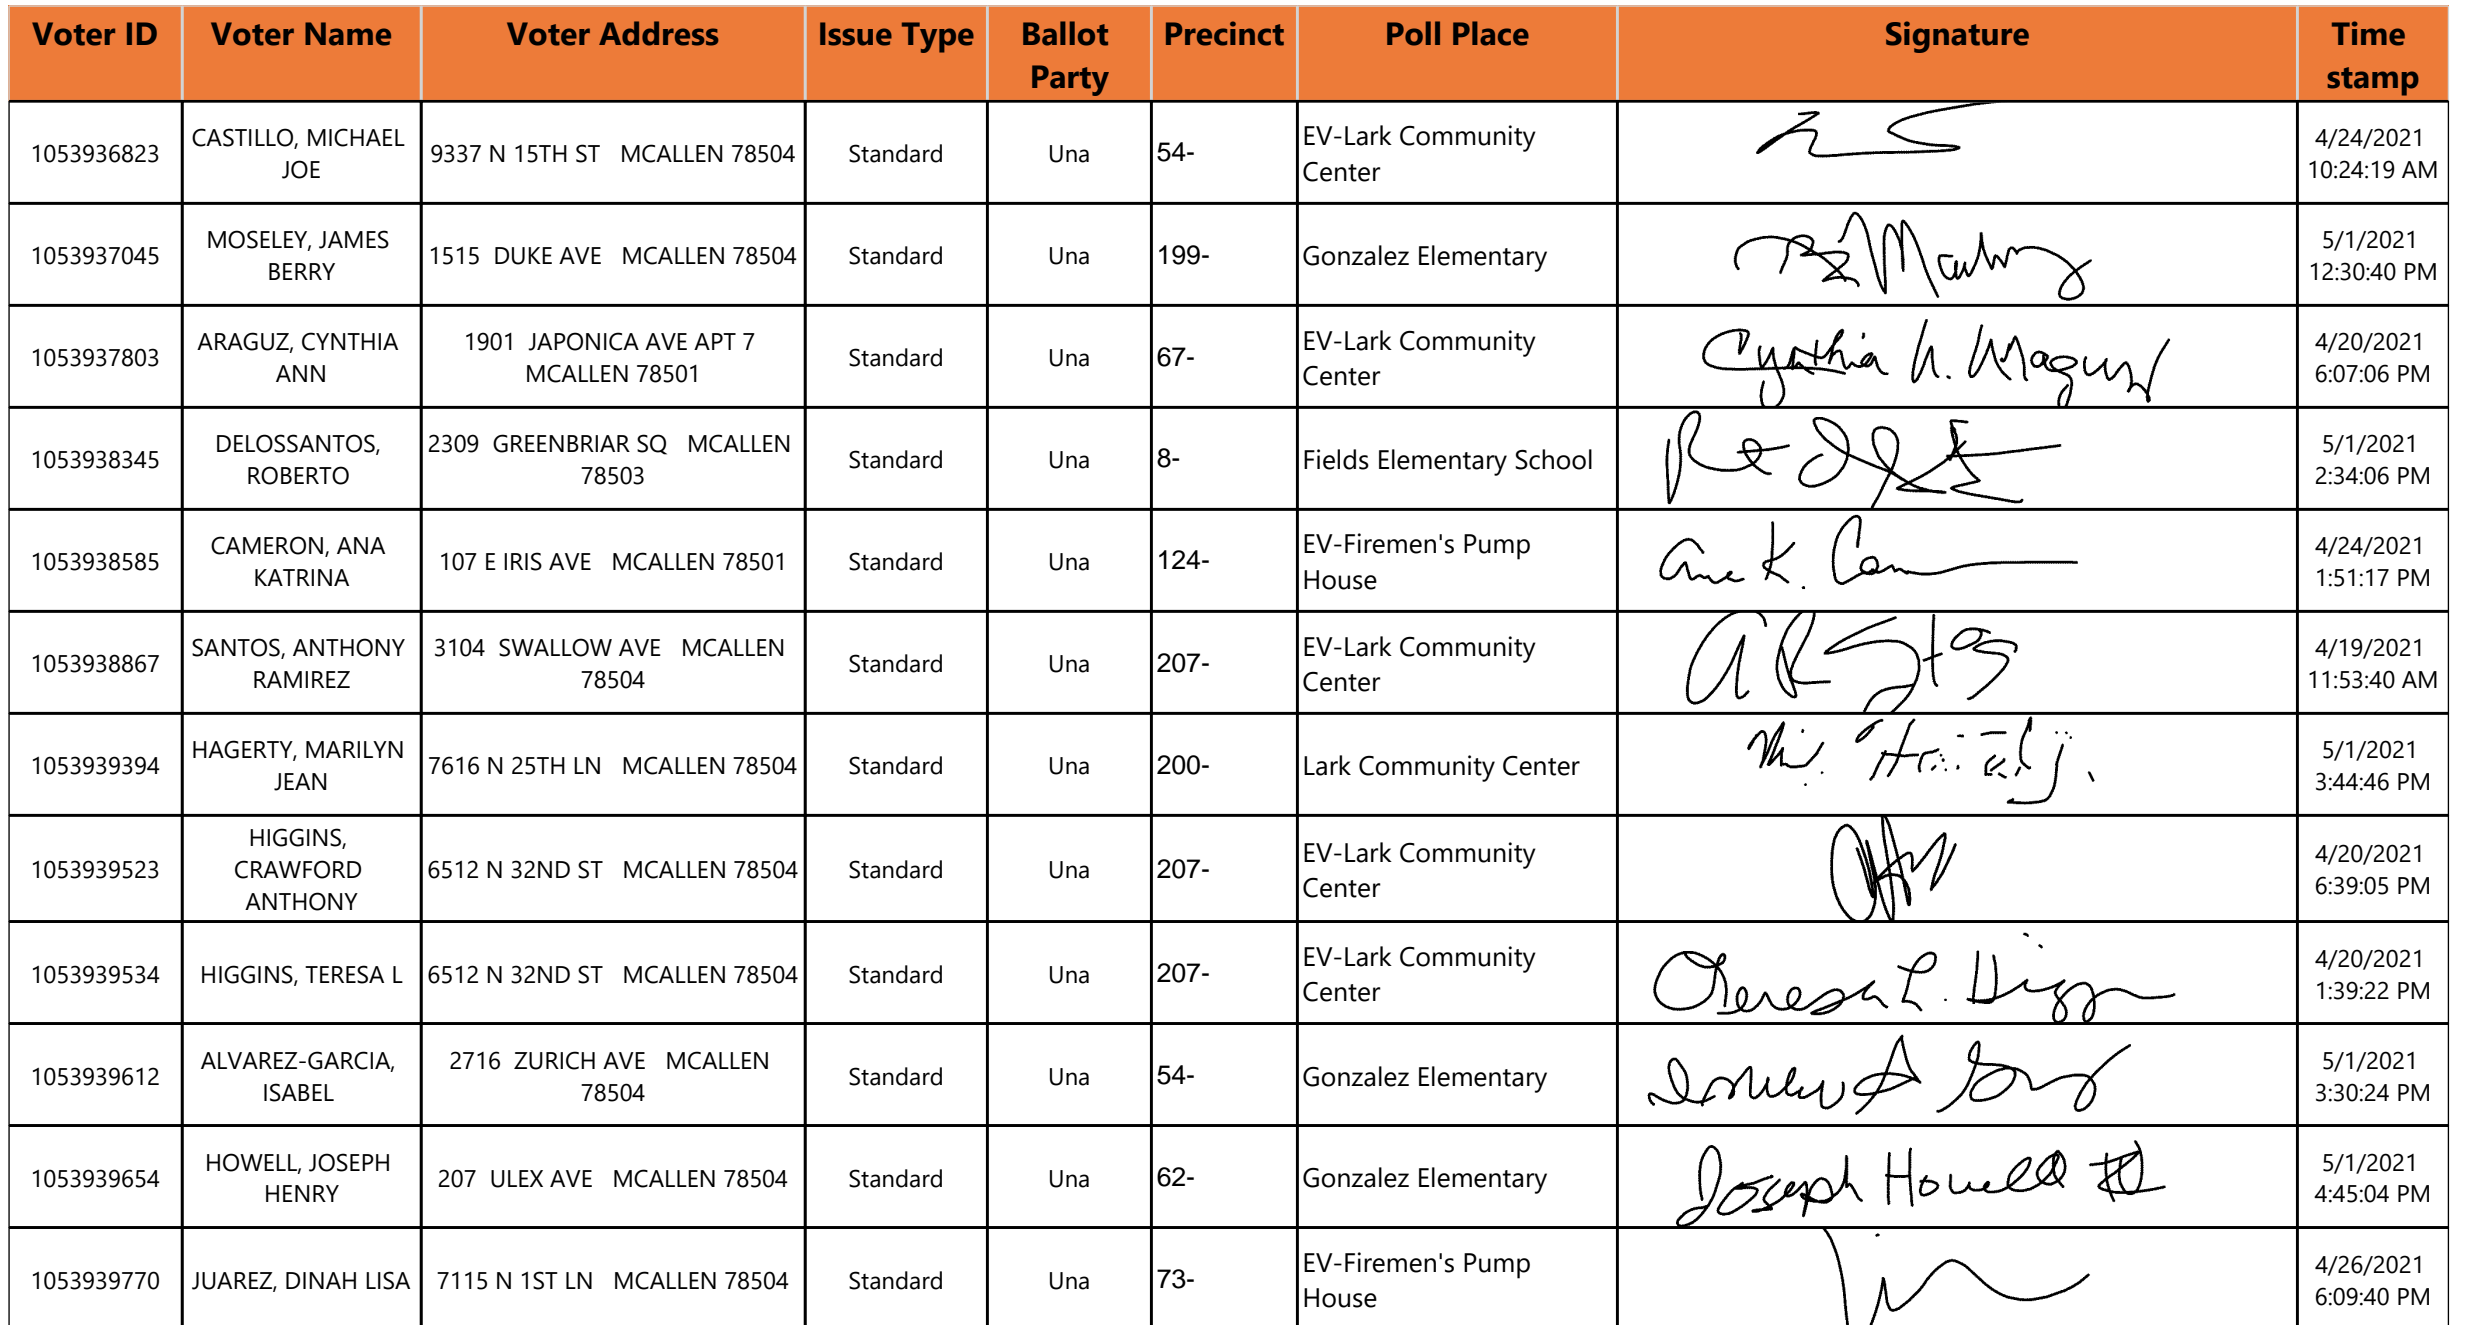 Voter ID Voter Name Voter Address Issue Type Ballot Party Precinct Poll Place Signature Time stamp
1053936823 CASTILLO, MICHAEL JOE 9337 N 15TH ST MCALLEN 78504 Standard Una 54- EV-Lark Community Center 4/24/2021 10:24:19 AM
1053937045 MOSELEY, JAMES BERRY 1515 DUKE AVE MCALLEN 78504 Standard Una 199- Gonzalez Elementary 5/1/2021 12:30:40 PM
1053937803 ARAGUZ, CYNTHIA ANN 1901 JAPONICA AVE APT 7 MCALLEN 78501 Standard Una 67- EV-Lark Community Center Cynthia A. Araguz 4/20/2021 6:07:06 PM
1053938345 DELOSSANTOS, ROBERTO 2309 GREENBRIAR SQ MCALLEN 78503 Standard Una 8- Fields Elementary School 5/1/2021 2:34:06 PM
1053938585 CAMERON, ANA KATRINA 107 E IRIS AVE MCALLEN 78501 Standard Una 124- EV-Firemen's Pump House Ana K. 4/24/2021 1:51:17 PM
1053938867 SANTOS, ANTHONY RAMIREZ 3104 SWALLOW AVE MCALLEN 78504 Standard Una 207- EV-Lark Community Center 4/19/2021 11:53:40 AM
1053939394 HAGERTY, MARILYN JEAN 7616 N 25TH LN MCALLEN 78504 Standard Una 200- Lark Community Center 5/1/2021 3:44:46 PM
1053939523 HIGGINS, CRAWFORD ANTHONY 6512 N 32ND ST MCALLEN 78504 Standard Una 207- EV-Lark Community Center 4/20/2021 6:39:05 PM
1053939534 HIGGINS, TERESA L 6512 N 32ND ST MCALLEN 78504 Standard Una 207- EV-Lark Community Center Teresa L. 4/20/2021 1:39:22 PM
1053939612 ALVAREZ-GARCIA, ISABEL 2716 ZURICH AVE MCALLEN 78504 Standard Una 54- Gonzalez Elementary 5/1/2021 3:30:24 PM
1053939654 HOWELL, JOSEPH HENRY 207 ULEX AVE MCALLEN 78504 Standard Una 62- Gonzalez Elementary Joseph Howell 5/1/2021 4:45:04 PM
1053939770 JUAREZ, DINAH LISA 7115 N 1ST LN MCALLEN 78504 Standard Una 73- EV-Firemen's Pump House 4/26/2021 6:09:40 PM